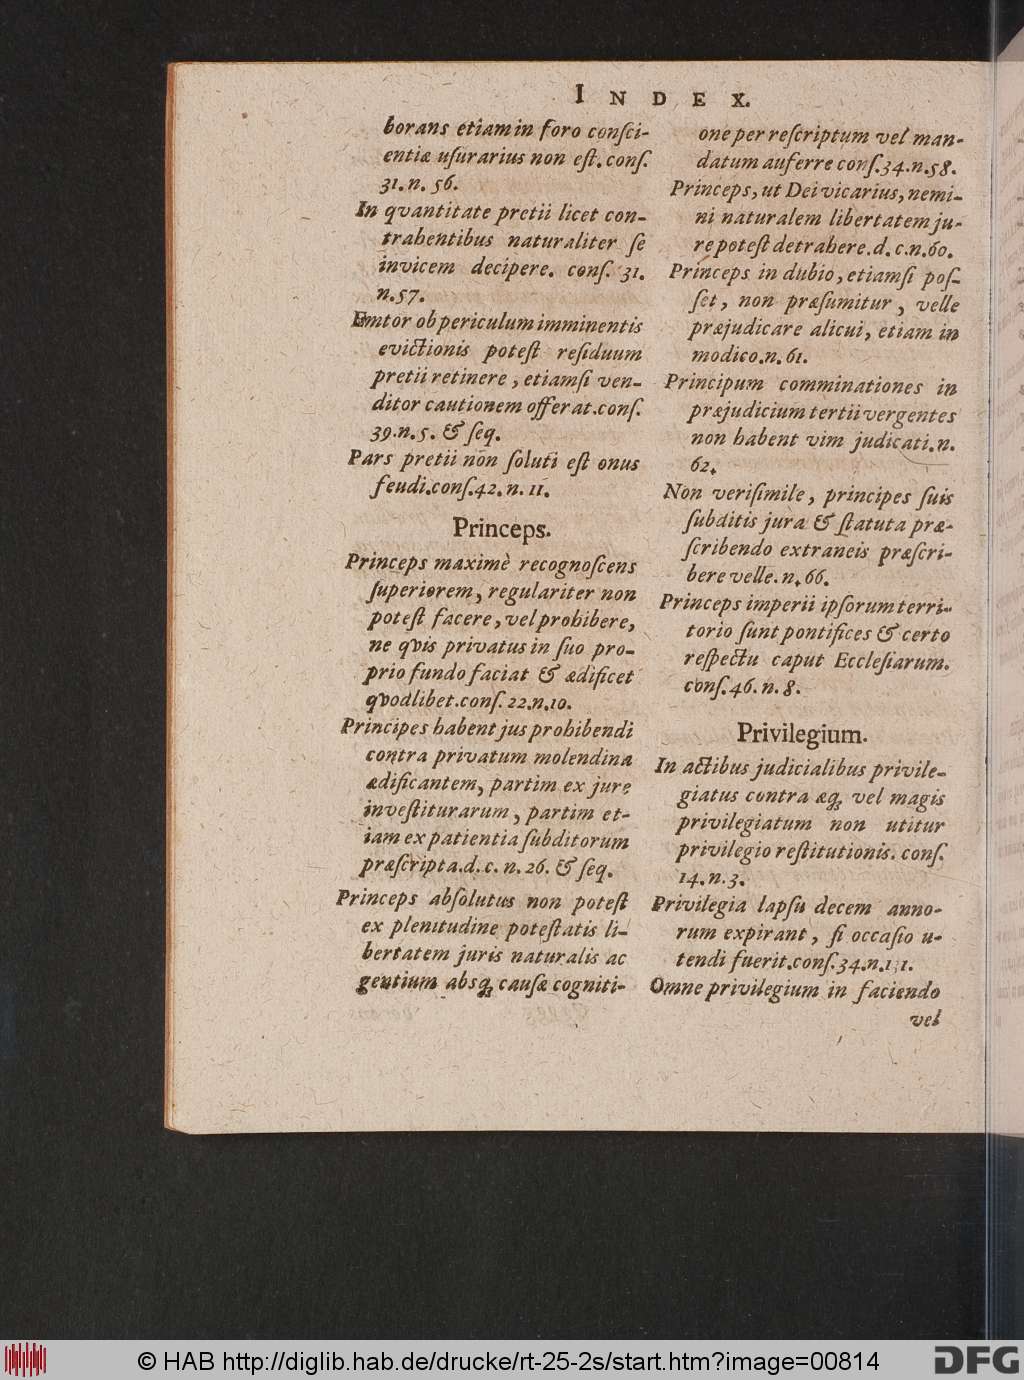 INDEX.
borans etiam in foro consci-
entiæ usurarius non est. cons.
31. n. 56.
In qvantitate pretii licet con-
trahentibus naturaliter se
invicem decipere. cons. 31.
n. 57.
Emtor ob periculum imminentis
evictionis potest residuum
pretii retinere, etiamsi ven-
ditor cautionem offerat. cons.
39. n. 5. & seq.
Pars pretii non soluti est onus
feudi. cons. 42. n. 11.
Princeps.
Princeps maximè recognoscens
superiorem, regulariter non
potest facere, vel prohibere,
ne qvis privatus in suo pro-
prio fundo faciat & ædificet
qvodlibet. cons. 22. n. 10.
Principes habent jus prohibendi
contra privatum molendina
ædificantem, partim ex jure
investiturarum, partim et-
iam ex patientia subditorum
præscripta. d. c. n. 26. & seq.
Princeps absolutus non potest
ex plenitudine potestatis li-
bertatem juris naturalis ac
gentium absq; causæ cogniti-
one per rescriptum vel man-
datum auferre cons. 34. n. 58.
Princeps, ut Dei vicarius, nemi-
ni naturalem libertatem ju-
re potest detrahere. d. c. n. 60.
Princeps in dubio, etiamsi pos-
set, non præsumitur, velle
præjudicare alicui, etiam in
modico. n. 61.
Principum comminationes in
præjudicium tertii vergentes
non habent vim judicati. n.
62.
Non verisimile, principes suis
subditis jura & statuta præ-
scribendo extraneis præscri-
bere velle. n. 66.
Princeps imperii ipsorum terri-
torio sunt pontifices & certo
respectu caput Ecclesiarum.
cons. 46. n. 8.
Privilegium.
In actibus judicialibus privile-
giatus contra æq; vel magis
privilegiatum non utitur
privilegio restitutionis. cons.
14. n. 3.
Privilegia lapsu decem anno-
rum expirant, si occasio u-
tendi fuerit. cons. 34. n. 131.
Omne privilegium in faciendo
vel
© HAB http://diglib.hab.de/drucke/rt-25-2s/start.htm?image=00814
DFG